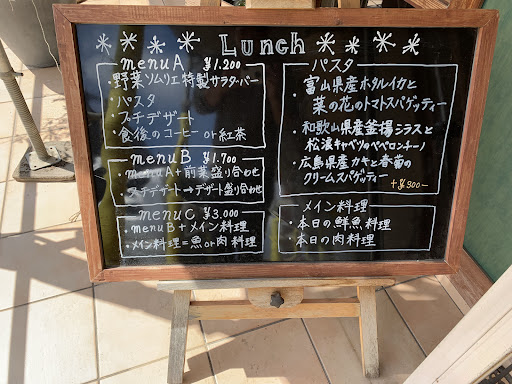 Lunch
menu A ¥1.200
・野菜ソムリエ特製サラダ・バー
・パスタ
・プチデザート
・食後のコーヒー or 紅茶
menu B ¥1.700
・menu A + 前菜盛り合わせ
・プチデザート→デザート盛り合わせ
menu C ¥3.000
・menu B + メイン料理
・メイン料理=魚 or 肉料理
パスタ
・富山県産ホタルイカと
菜の花のトマトスパゲッティー
・和歌山県産釜揚シラスと
松波キャベツのペペロンチーノ
・広島県産カキと春菊の
クリームスパゲッティー
+¥300-
メイン料理
・本日の鮮魚料理
・本日の肉料理